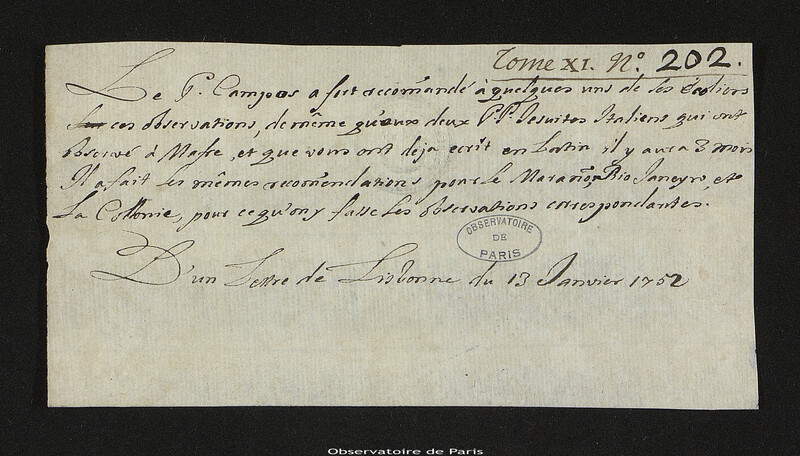 Tome XI. N.º 202.
Le P. Campos a fort recomãndé à quelques uns de ses écoliers
ces observations, de même qu'aux deux P.P. Jesuites Italiens qui ont
observé à Mafre, et que vous ont deja ecrit en Latin il y aura 3 mois
Il a fait les mêmes recomẽndations pour le Marañõ, Rio Janeyro, et
La Collonie, pour ce qu'on y fasse les observations correspondantes.
OBSERVATOIRE
DE
PARIS
D'un Lettre de Lisbonne du 13 Janvier 1752
Observatoire de Paris